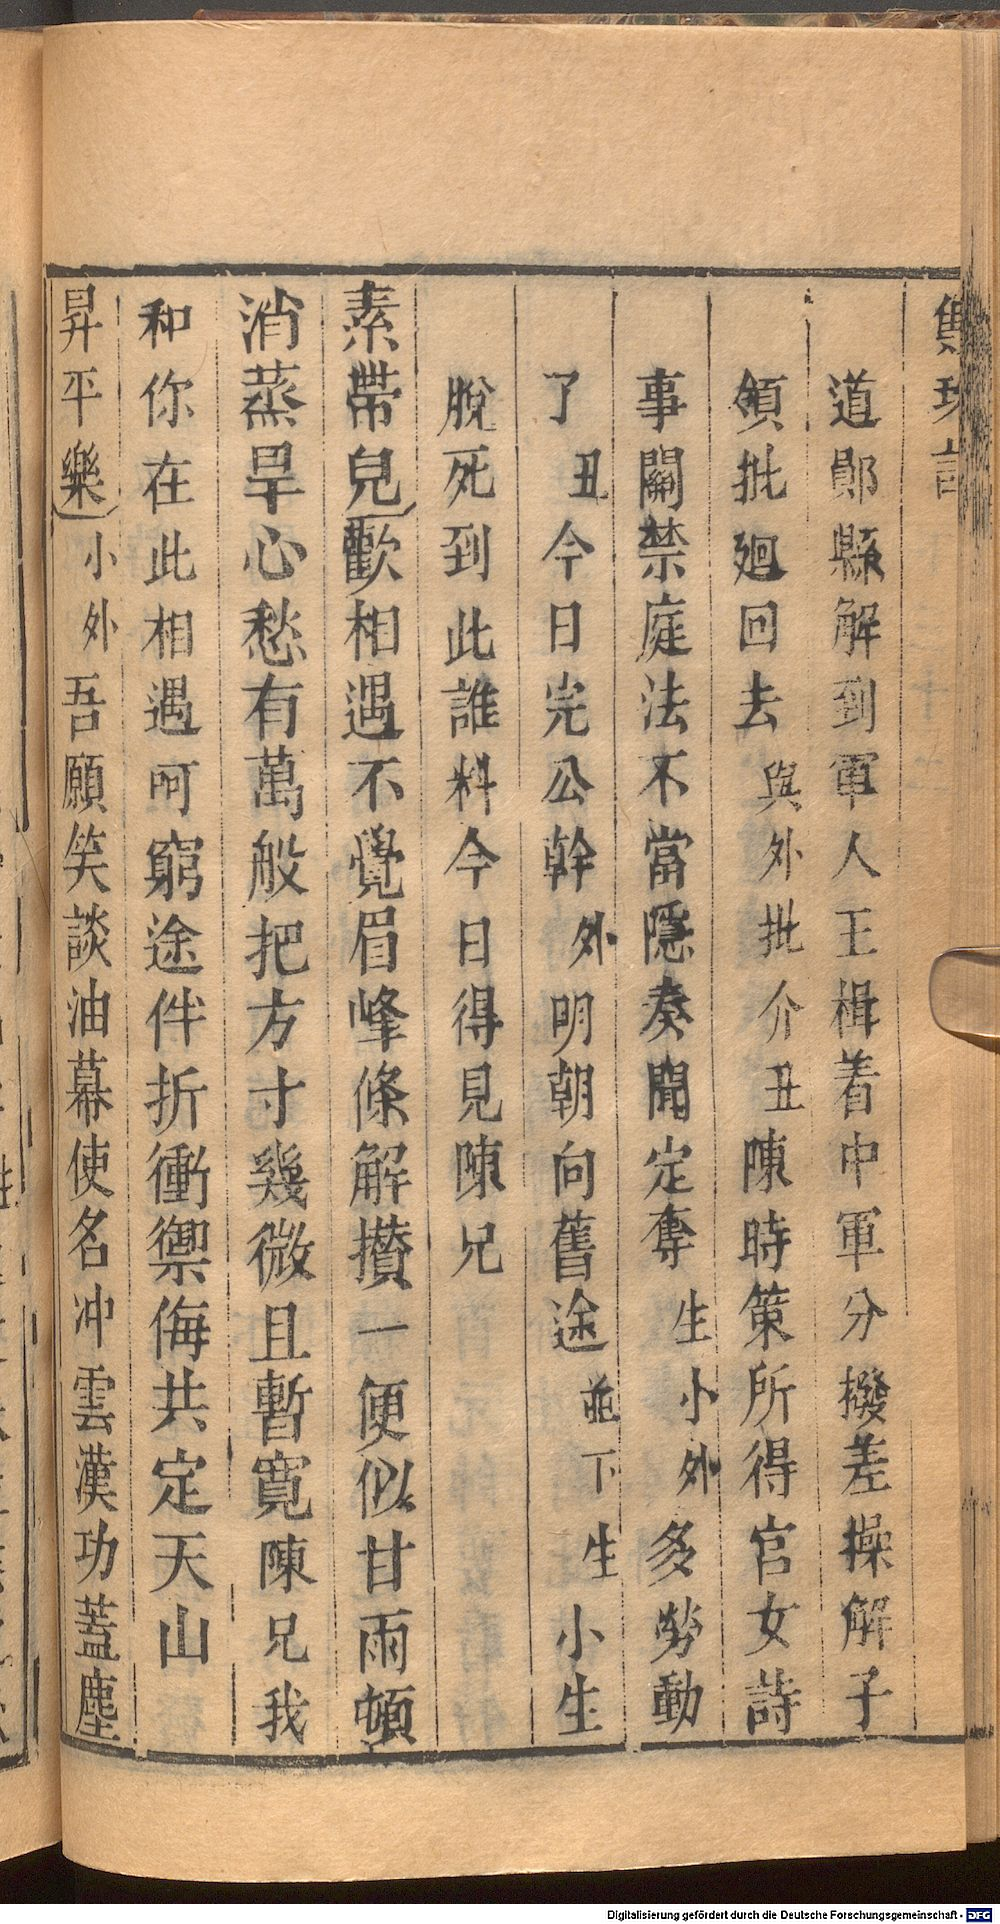 雋珠記
道鄖縣解到軍人王楫着中軍分撥差操解子
領批廻回去與外批介丑陳時策所得官女詩
事關禁庭法不當隱奏聞定奪生小外多勞動
了丑今日完公幹外明朝向舊途並下生小生
脫死到此誰料今日得見陳兄
素帶兒歡相遇不覺眉峰條解攢一便似甘雨頓
消蒸旱心愁有萬般把方寸幾微且暫寬陳兄我
和你在此相遇呵窮途伴折衝禦侮共定天山
昇平樂小外吾願笑談油幕使名冲雲漢功蓋塵
Digitalisierung gefördert durch die Deutsche Forschungsgemeinschaft - DFG